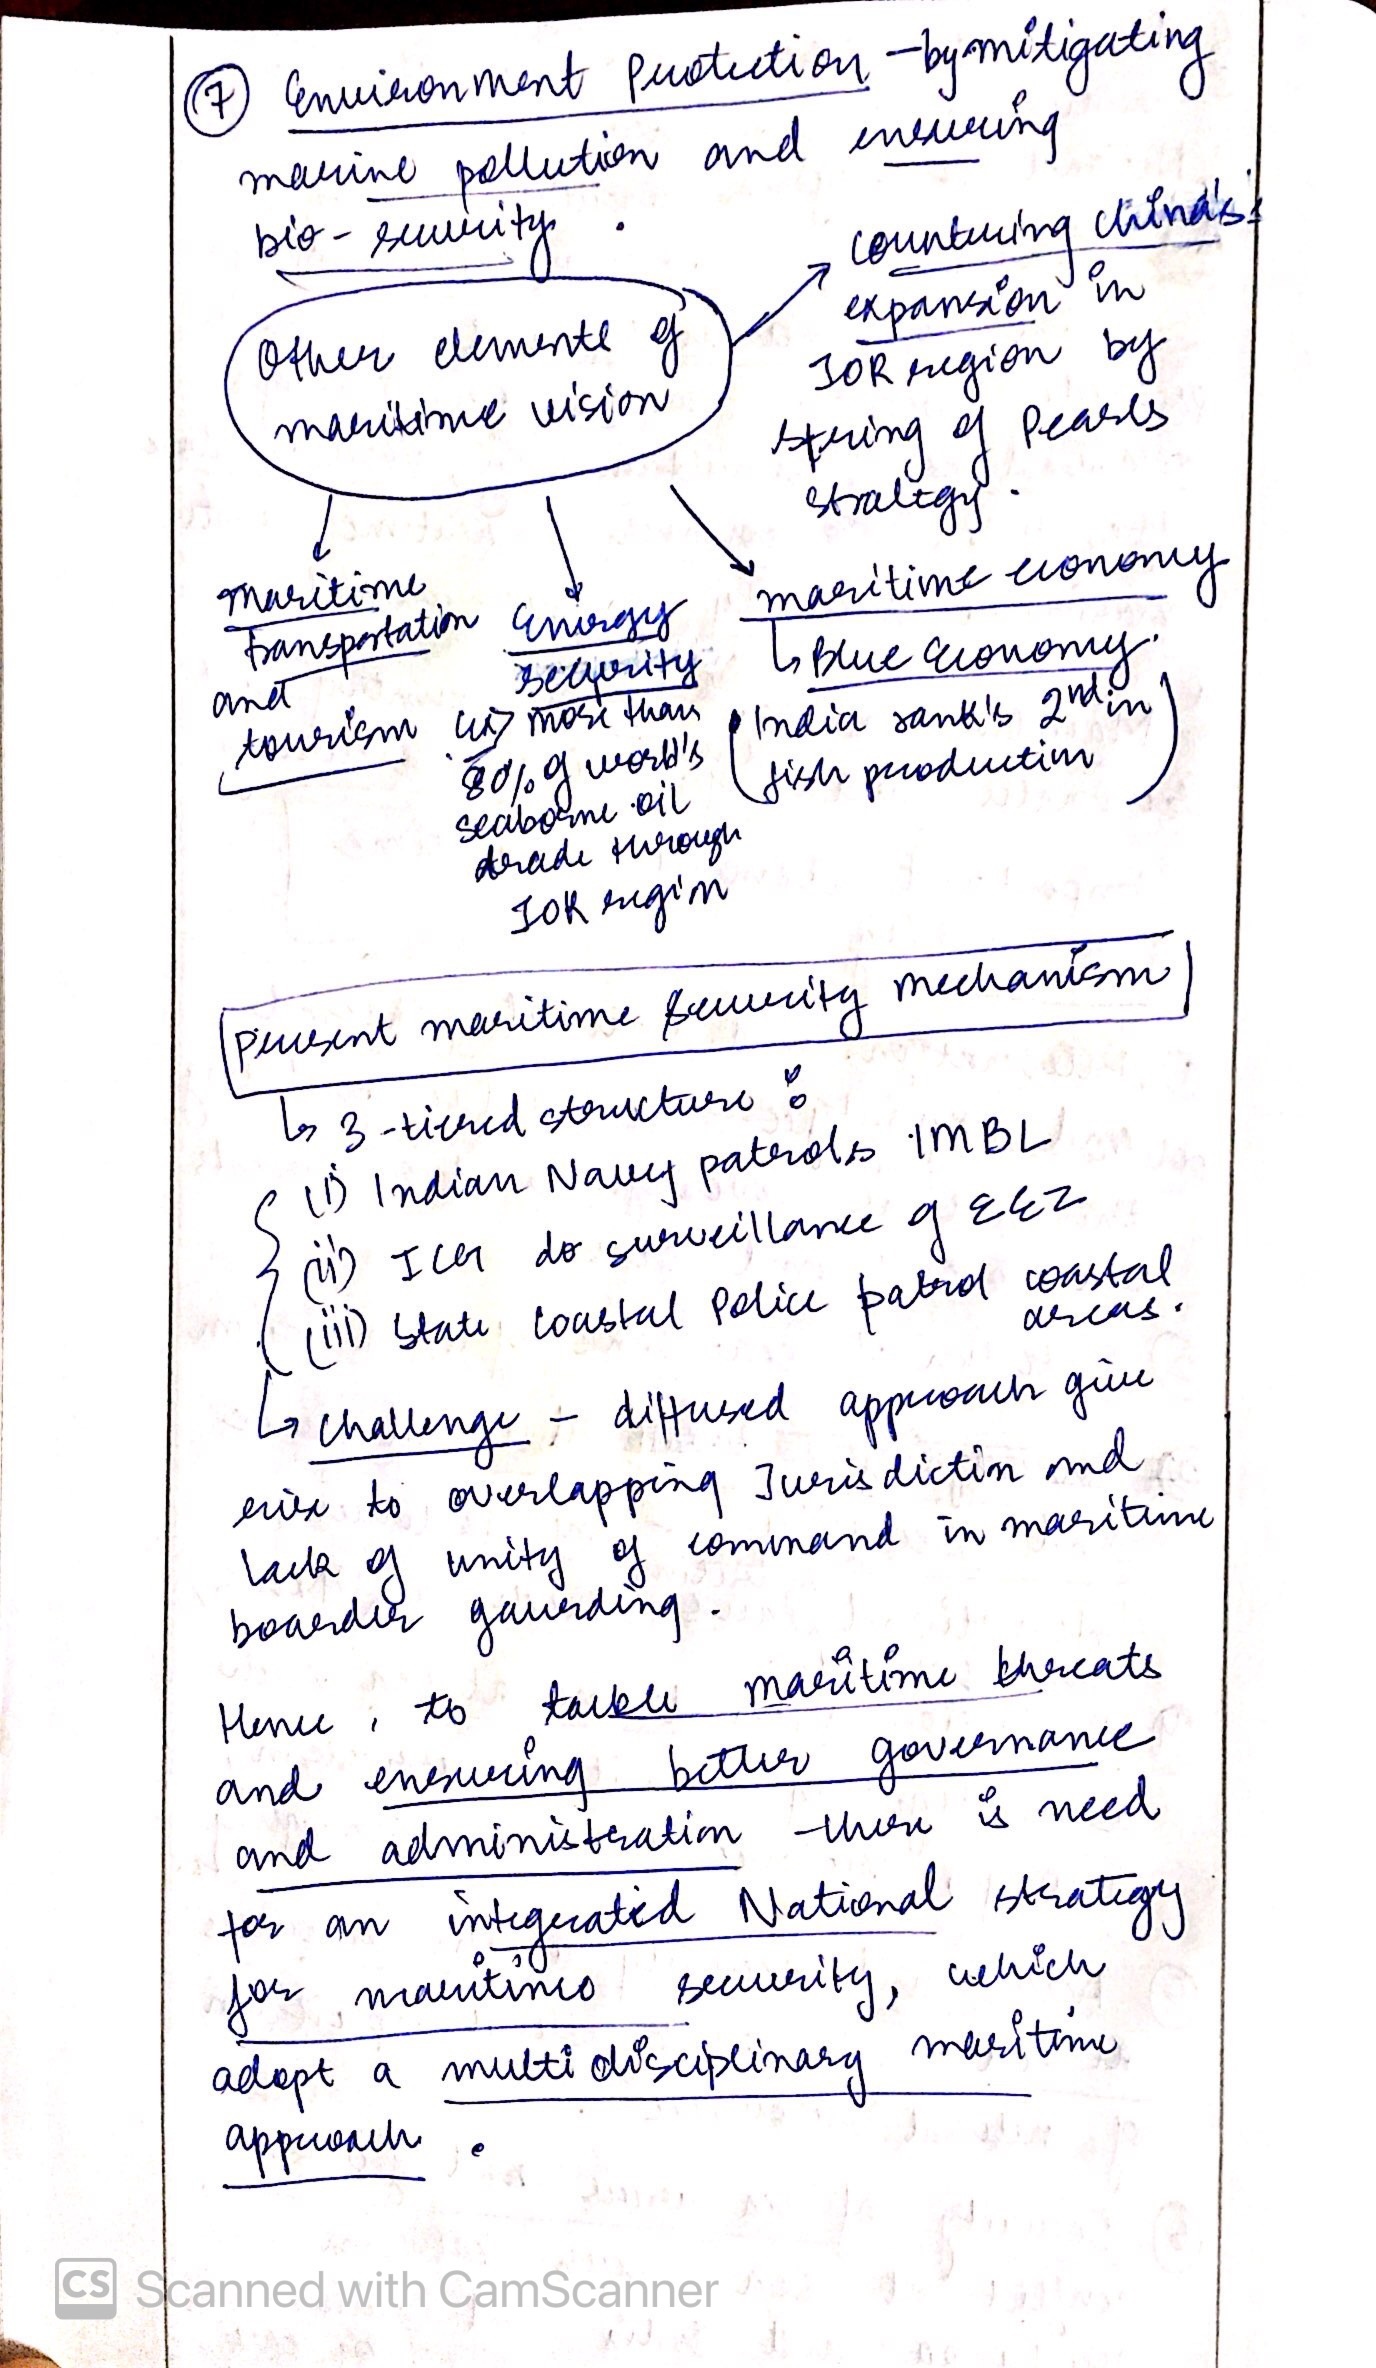 ⑦ Environment Protection - by mitigating
marine pollution and ensuring
bio-security.
Other elements of
maritime vision
countering China's
expansion in
IOR region by
string of Pearls
strategy.
maritime
transportation
and
tourism
Energy
security
more than
80% of world's
seaborne oil
trade through
IOR region
maritime economy
↳ Blue Economy.
(India rank's 2nd in
fish production)
Present maritime security mechanism
↳ 3-tiered structure :
(i) Indian Navy patrols IMBL
(ii) ICG do surveillance of EEZ
(iii) State Coastal Police patrol coastal
areas.
↳ Challenge - diffused approach give
rise to overlapping Jurisdiction and
lack of unity of command in maritime
boarder gaurding.
Hence, to tackle maritime threats
and ensuring better governance
and administration there is need
for an integrated National strategy
for maritime security, which
adopt a multidisciplinary maritime
approach.
CS Scanned with CamScanner